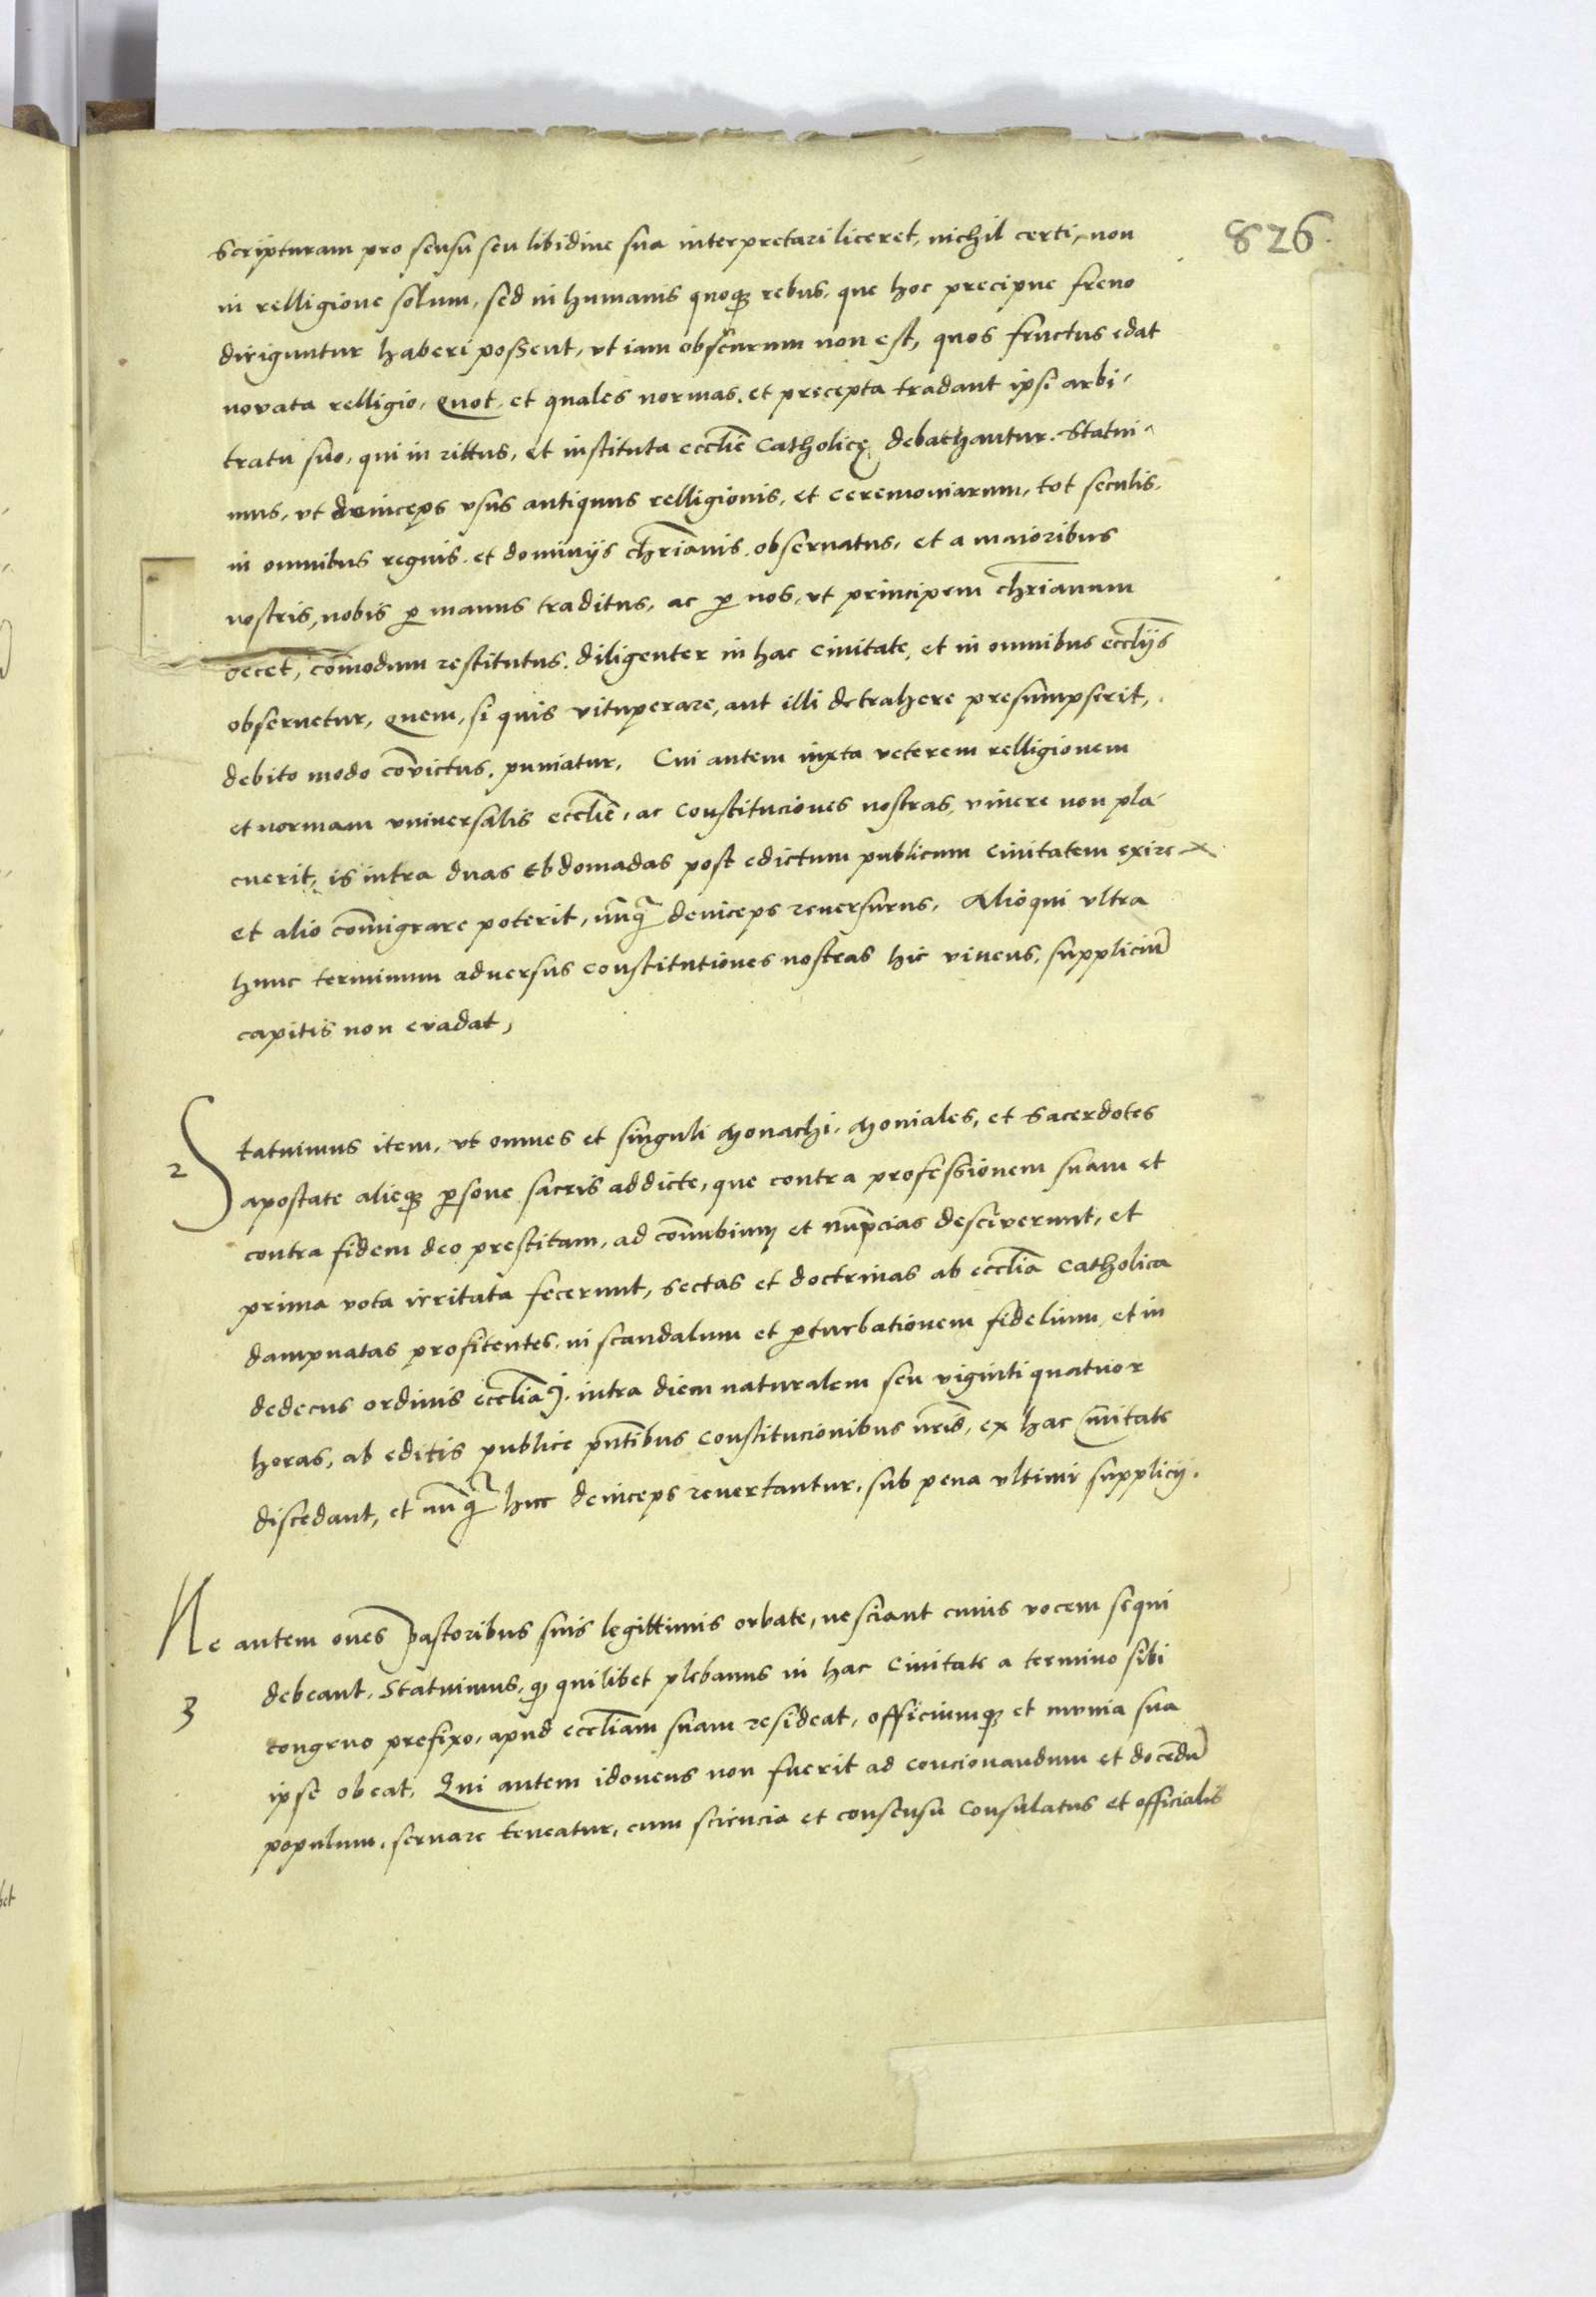 826
Scripturam pro sensu seu libidine sua interpretari liceret, nichil certi, non
in relligione solum, sed in humanis quoqꝫ rebus, que hoc precipue freno
diriguntur haberi possent, vt iam obscurum non est, quos fructus edat
novata relligio, Quot, et quales normas, et precepta tradant ipsi arbi-
tratu suo, qui in rittus, et instituta eccl̄ie Catholicę debachantur. Statui-
mus, vt deinceps vsus antiquus relligionis, et ceremoniarum, tot seculis,
in omnibus regnis, et dominijs chr̄ianis, obseruatus, et a maioribus
nostris, nobis ꝑ manus traditus, ac ꝑ nos, vt principem chr̄ianum
decet, com̄odum restitutus, diligenter in hac Ciuitate, et in omnibus eccl̄ijs
obseruetur, Quem, si quis vituperare, aut illi detrahere presumpserit,
debito modo con̄victus, puniatur, Cui autem iuxta veterem relligionem
et normam vniuersalis eccl̄ie, ac Constituciones nostras, viuere non pla-
cuerit, is intra duas Ebdomadas post edictum publicum Ciuitatem exire
et alio com̄igrare poterit, nūq̄ deinceps reuersurus, Alioqui vltra
hunc terminum aduersus constitutiones nostras hic viuens, suppliciū
capitis non evadat,
2 Statuimus item, vt omnes et singuli Monachi, Moniales, et Sacerdotes
apostate alieqꝫ ꝑsone sacris addicte, que contra professionem suam et
contra fidem deo prestitam, ad con̄ubium et nup̄cias desciverunt, et
prima vota irritata fecerunt, sectas et doctrinas ab eccl̄ia Catholica
dampnatas profitentes, in scandalum et ꝑturbationem fidelium, et in
dedecus ordinis eccl̄iaꝯ, intra diem naturalem seu viginti quatuor
horas, ab editis publice pn̄tibus Constitucionibus nr̄is, ex hac Ciuitate
discedant, et nūq̄ huc deinceps reuertantur, sub pena vltimi supplicij.
Ne autem oues pastoribus suis legittimis orbate, nesciant cuius vocem sequi
3 debeant, Statuimus, ꝙ quilibet plebanus in hac Ciuitate a termino sibi
congruo prefixo, apud eccl̄iam suam resideat, officiumqꝫ et munia sua
ipse obeat, Qui autem idoneus non fuerit ad concionandum et docēdū
populum, seruare teneatur, cum sciencia et consensu Consulatus et officialis